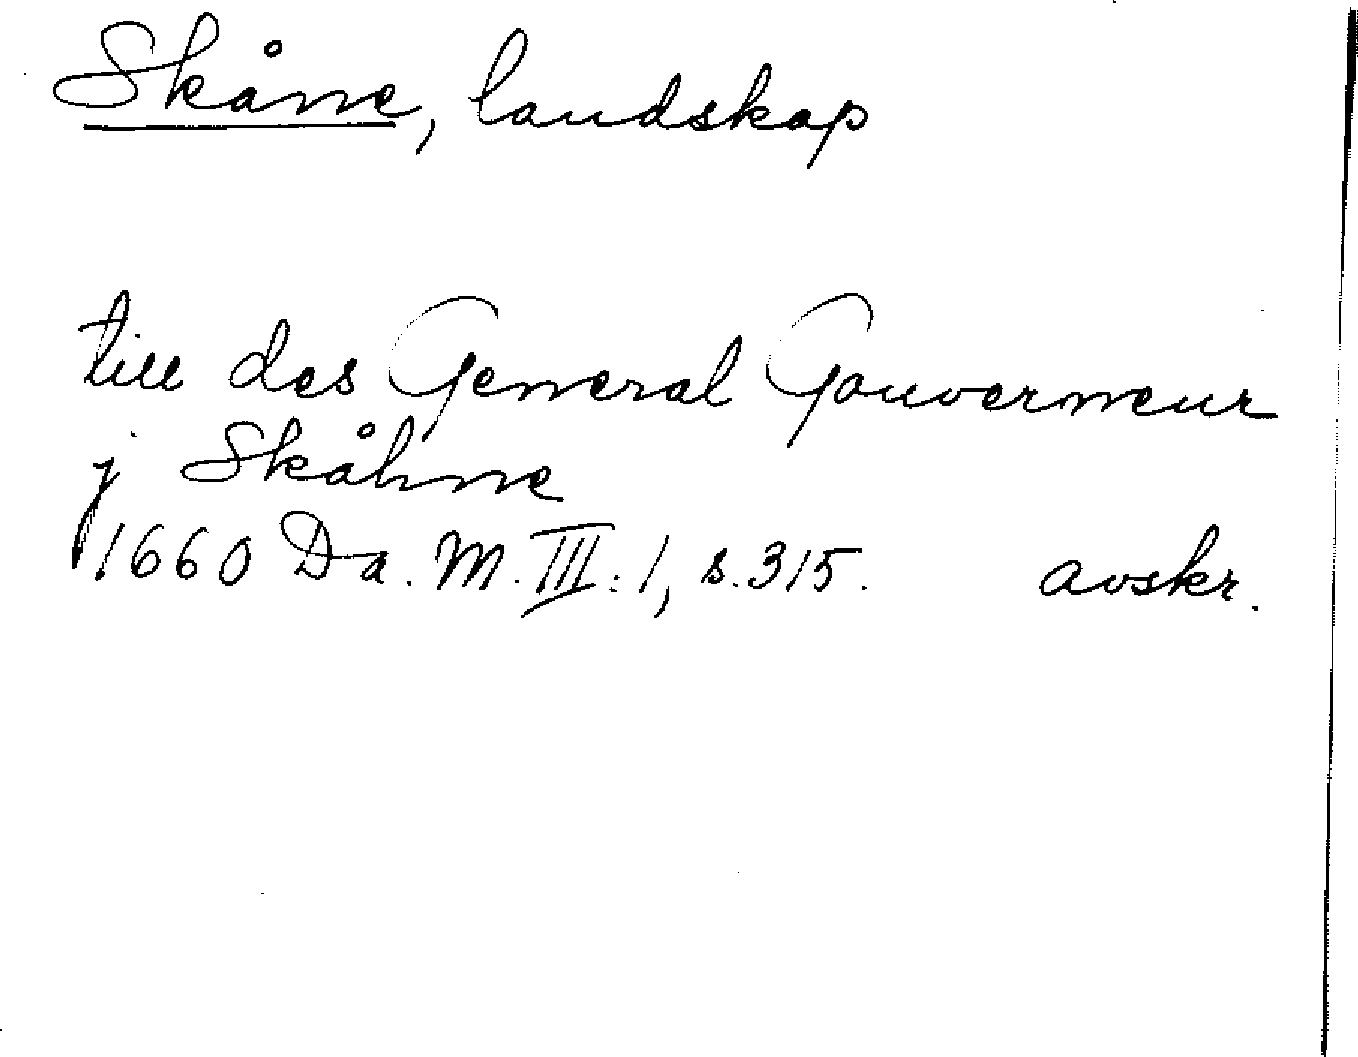 Skåne, landskap
till des General Gouverneur
j Skåhne
1660 Da. M. III: 1, s. 315. avskr.